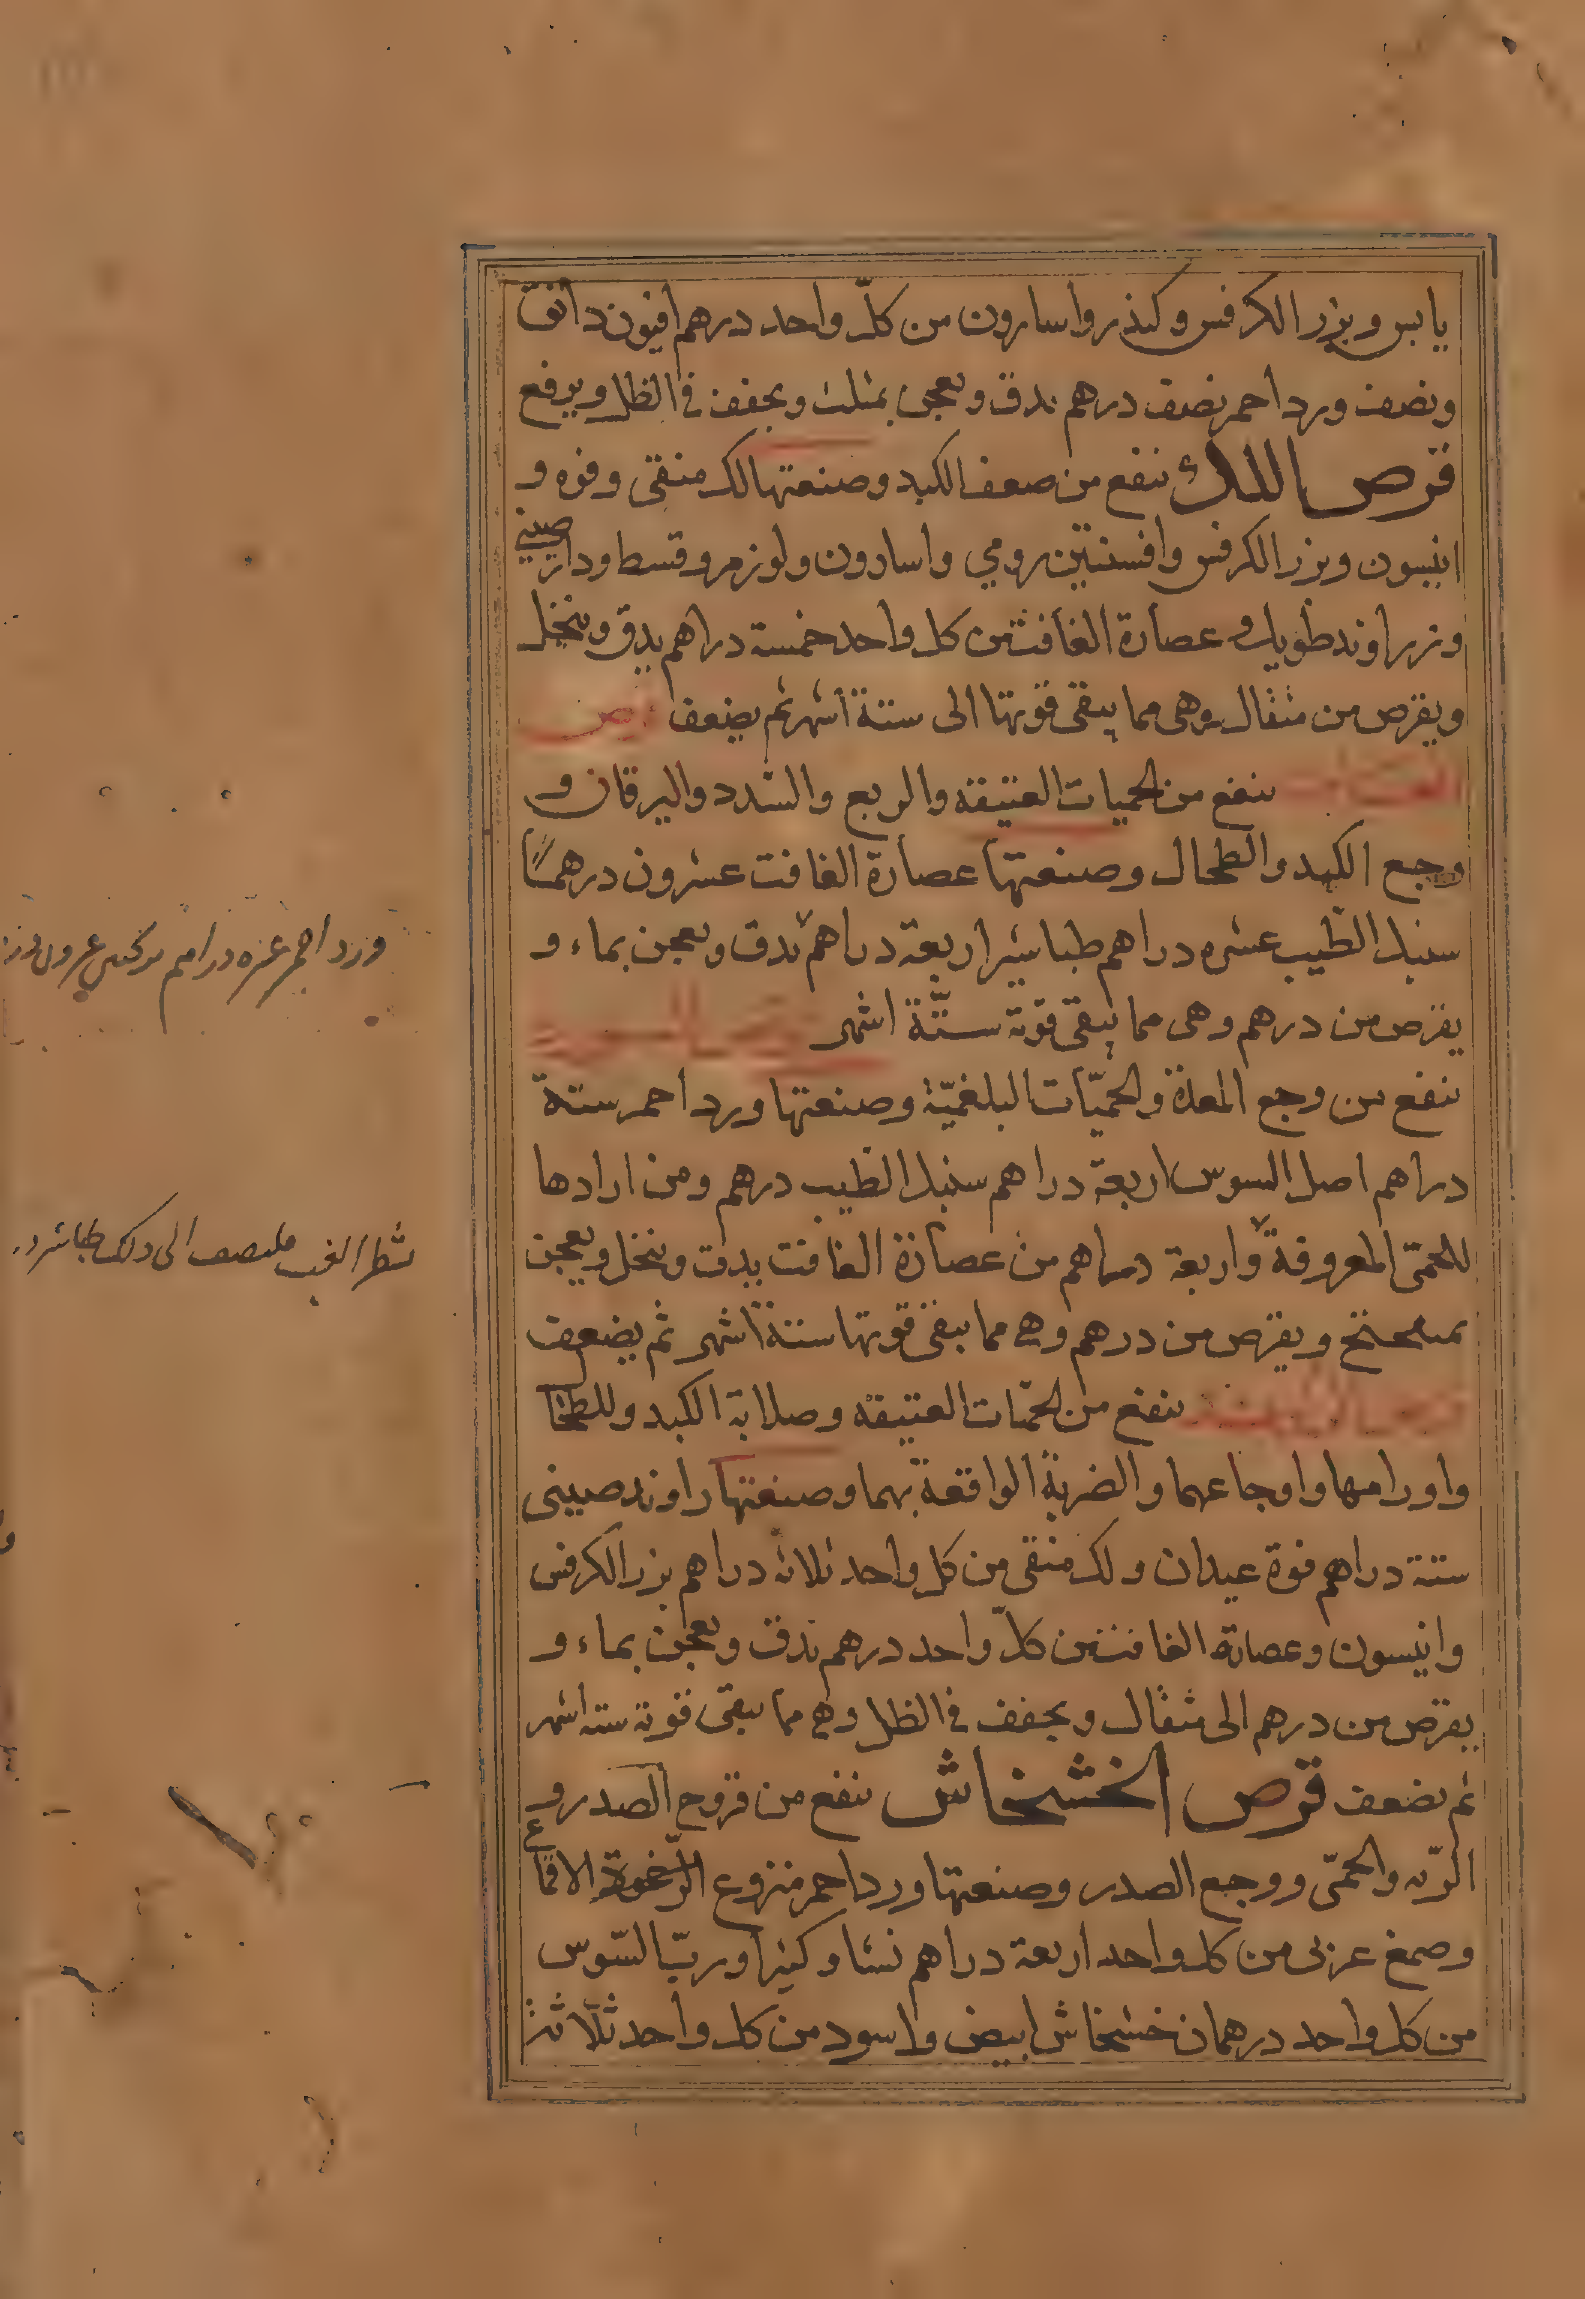 يابس وبزر الكرفس وكندر واسارون من كلّ واحد درهم افيون دانق
ونصف ورد احمر نصف درهم يدق ويعجن بمثلث ويجفف في الظل ويرفع
قرص اللك ينفع من ضعف الكبد وصنعتها لك منقى وفوه و
انيسون وبزر الكرفس وافسنتين رومي واسارون ولوز مر وقسط ودار صيني
وزراوند طويل وعصارة الغافت من كل واحد خمسة دراهم يدق وينخل
ويقرص من مثقال وهي مما يبقى قوتها الى ستة اشهر ثم يضعف قرص
ينفع من الحميات العتيقه والربع والسدد واليرقان و
وجع الكبد والطحال وصنعتها عصارة الغافت عشرون درهمًا
سنبل الطيب عشره دراهم طباشير اربعة دراهم يدق ويعجن بماء و
يقرص من درهم وهي مما يبقى قوته ستّة اشهر
ينفع من وجع المعدة والحميّات البلغميّة وصنعتها ورد احمر ستة
دراهم اصل السوس اربعة دراهم سنبل الطيب درهم ومن ارادها
للحمّى المعروفة واربعة دراهم من عصارة الغافت يدق وينخل ويعجن
بميبختج ويقرص من درهم وهي مما يبقى قوتها ستة اشهر ثم يضعف
ينفع من الحمّيات العتيقه وصلابة الكبد وللطحا
واورامها واوجاعهما والضربة الواقعة بهما وصنعتها راوند صيني
ستة دراهم فوة عيدان ولك منقى من كل واحد ثلاثه دراهم بزر الكرفس
وانيسون وعصارة الغافت من كلّ واحد درهم يدق ويعجن بماء و
يقرص من درهم الى مثقال ويجفف في الظل وهي مما يبقى قوته سته اشهر
ثم يضعف قرص الخشخاش ينفع من قروح الصدر و
الرّيه والحمّى ووجع الصدر وصنعتها ورد احمر منزوع الاقماع
وصمغ عربى من كل واحد اربعة دراهم نشا وكثيرا وربّ السّوس
من كل واحد درهمان خشخاش ابيض واسود من كل واحد ثلاثة
ورد احمر عشره دراهم
شطر الغب الى ذلك طباشير